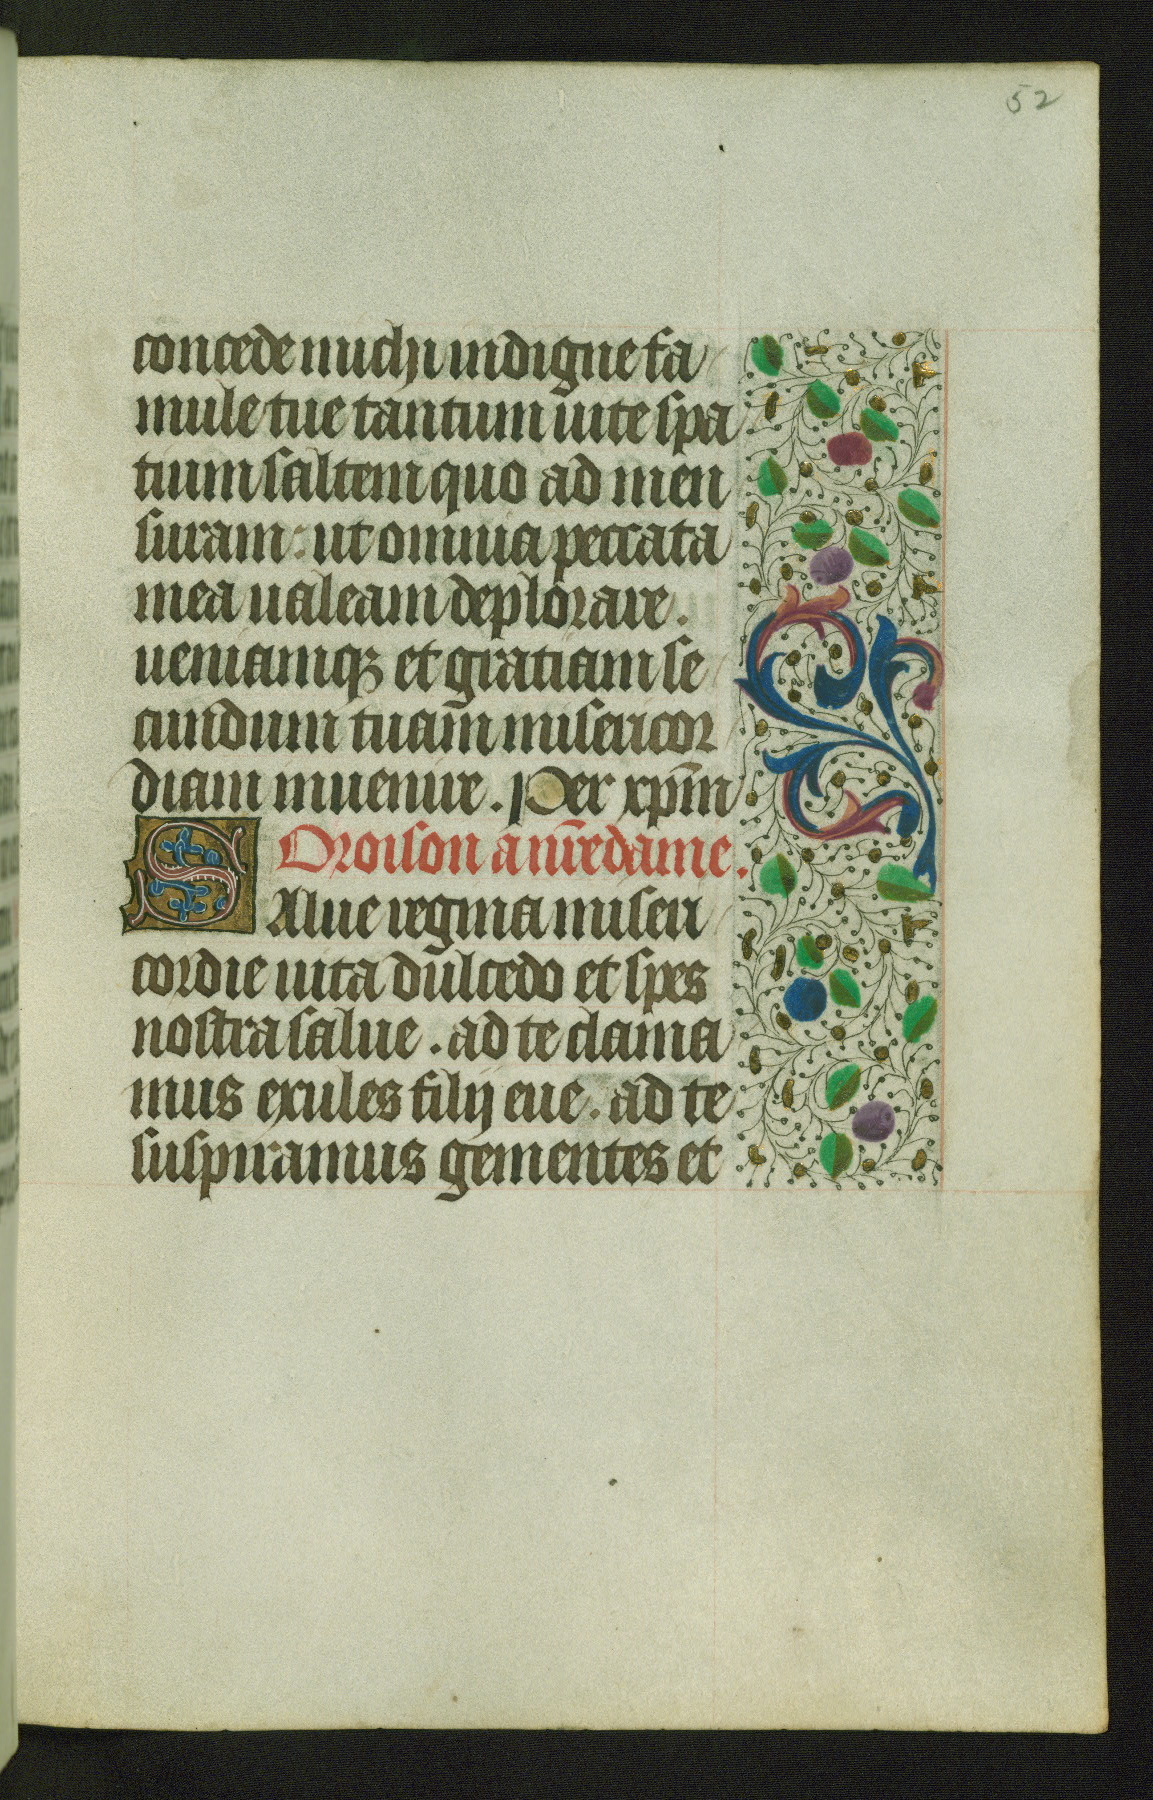 52
concede michi indigne fa
mule tue tantum uite spa
tium saltem quo ad men
suram : ut omnia peccata
mea ualeam deplorare .
ueniamqꝫ et gratiam se
cundum tuam̄ misericor
diam inuenire . Per xp̄m
Oroison a nr̄e dame .
Salue regina miseri
cordie uita dulcedo et spes
nostra salue . ad te clama
mus exules filij eue . ad te
suspiramus gementes et